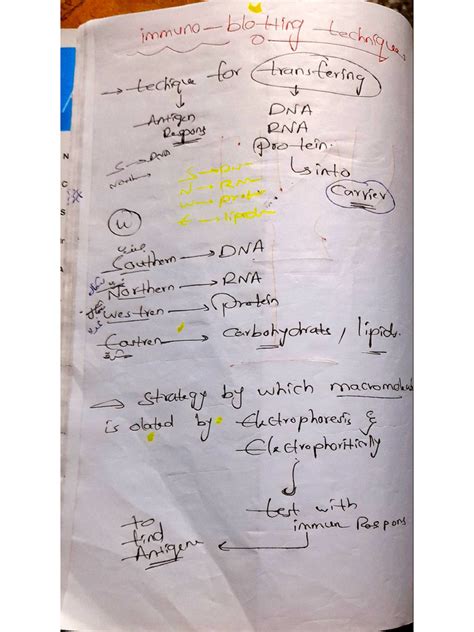 immuno-blotting techniques
→ techique for transfering
↓
Antigen
Respons
DNA
RNA
Protein
↳ into
Carrier
S → DNA
North →
S → DN
N → RN
W → prote
E → lipids
W
Southern → DNA
Northern → RNA
Westren → Protein
Eastren → carbohydrats, lipids
→ Strategy by which macromolecul
is olated by Electrophoresis &
Electrophoritically
↓
test with
immun Respons
←
to
find
Antigene
N
C
S